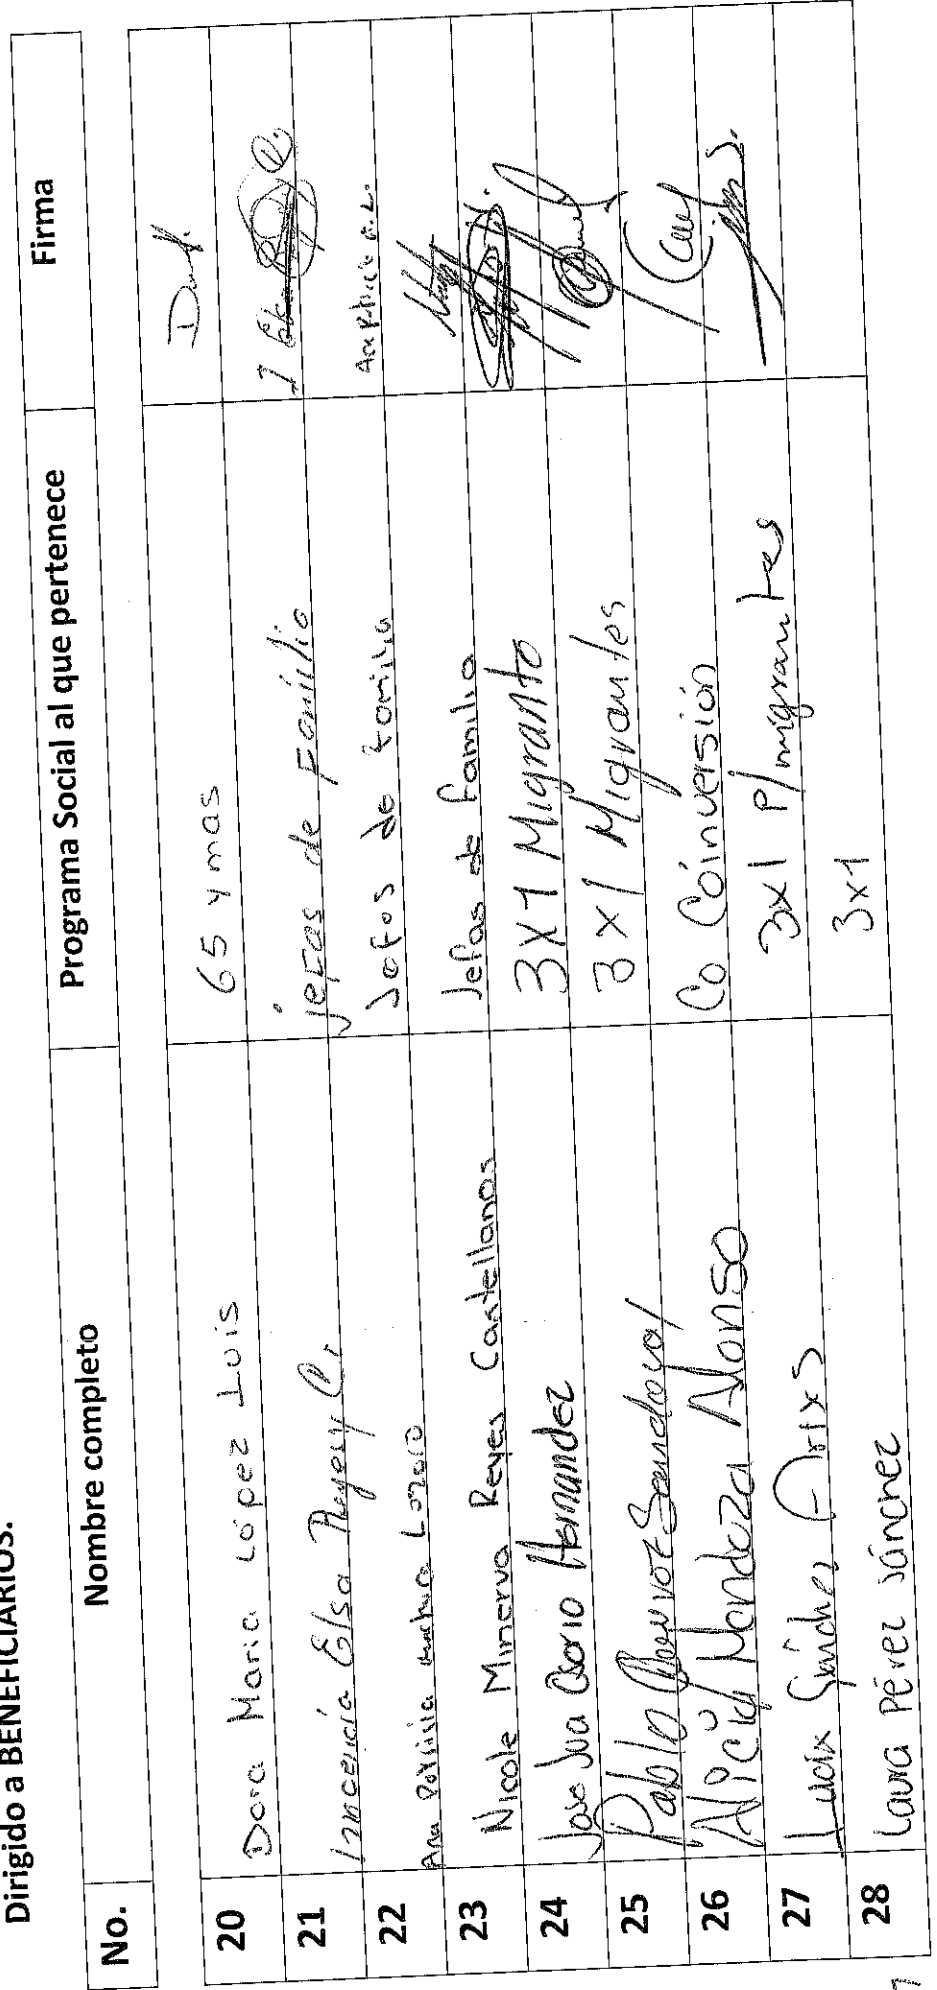 Dirigido a BENEFICIARIOS.
No. Nombre completo Programa Social al que pertenece Firma
20 Dora Maria López Luis 65 y mas
21 Inocencia Elsa Reyes C. jefas de Familia
22 Ana Patricia Lozano Jefas de familia Ana Patricia
23 Nicole Minerva Reyes Castellanos Jefas de familia
24 Jose Jua Osorio Hernandez 3x1 Migrante
25 Pablo Sandoval 3x1 Migrantes
26 Alicia Mendoza Alonso Co Coinversión
27 Lucia Sánchez 3x1 p/migrantes
28 Laura Pérez Sánchez 3x1